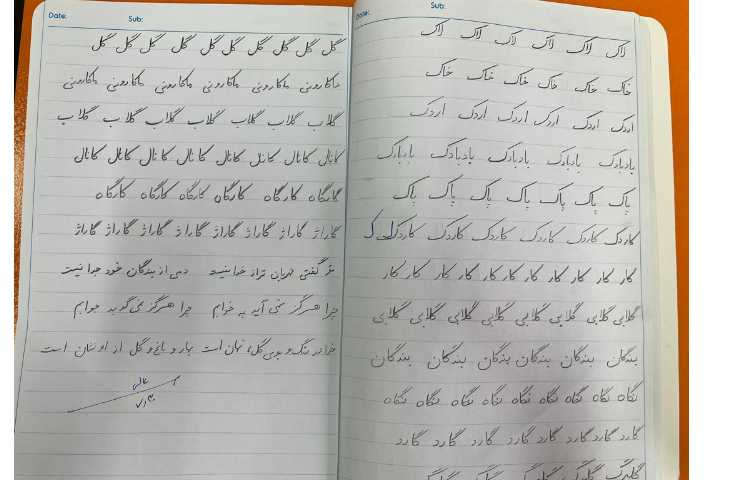 Date: Sub:
لاک لاک لاک لاک لاک لاک
خاک خاک خاک خاک خاک
اردک اردک اردک اردک اردک اردک
بادبادک بادبادک بادبادک بادبادک
پاک پاک پاک پاک پاک پاک پاک
کاردک کاردک کاردک کاردک کاردک کاردک ک
کار کار کار کار کار کار کار کار کار کار
گلابی گلابی گلابی گلابی گلابی گلابی گلابی
بندگان بندگان بندگان بندگان بندگان بندگان
نگاه نگاه نگاه نگاه نگاه نگاه نگاه نگاه
گارد گارد گارد گارد گارد گارد گارد گارد
گلبرگ گلبرگ گلبرگ
Date: Sub:
گل گل گل گل گل گل گل گل گل
ماکارونی ماکارونی ماکارونی ماکارونی ماکارونی ماکارونی
گلاب گلاب گلاب گلاب گلاب گلاب گلاب
کانال کانال کانال کانال کانال کانال کانال
کارگاه کارگاه کارگاه کارگاه کارگاه کارگاه
گاراژ گاراژ گاراژ گاراژ گاراژ گاراژ گاراژ گاراژ
مگر گفتی مهربان تر از خدا نیست دمی از بندگان خود جدا نیست
چرا هرگز نمی آید به خوابم چرا هرگز نمی گوید جوابم
خدا در رنگ و بوی گل، نهان است بهار و باغ و گل از او نشان است
عالی